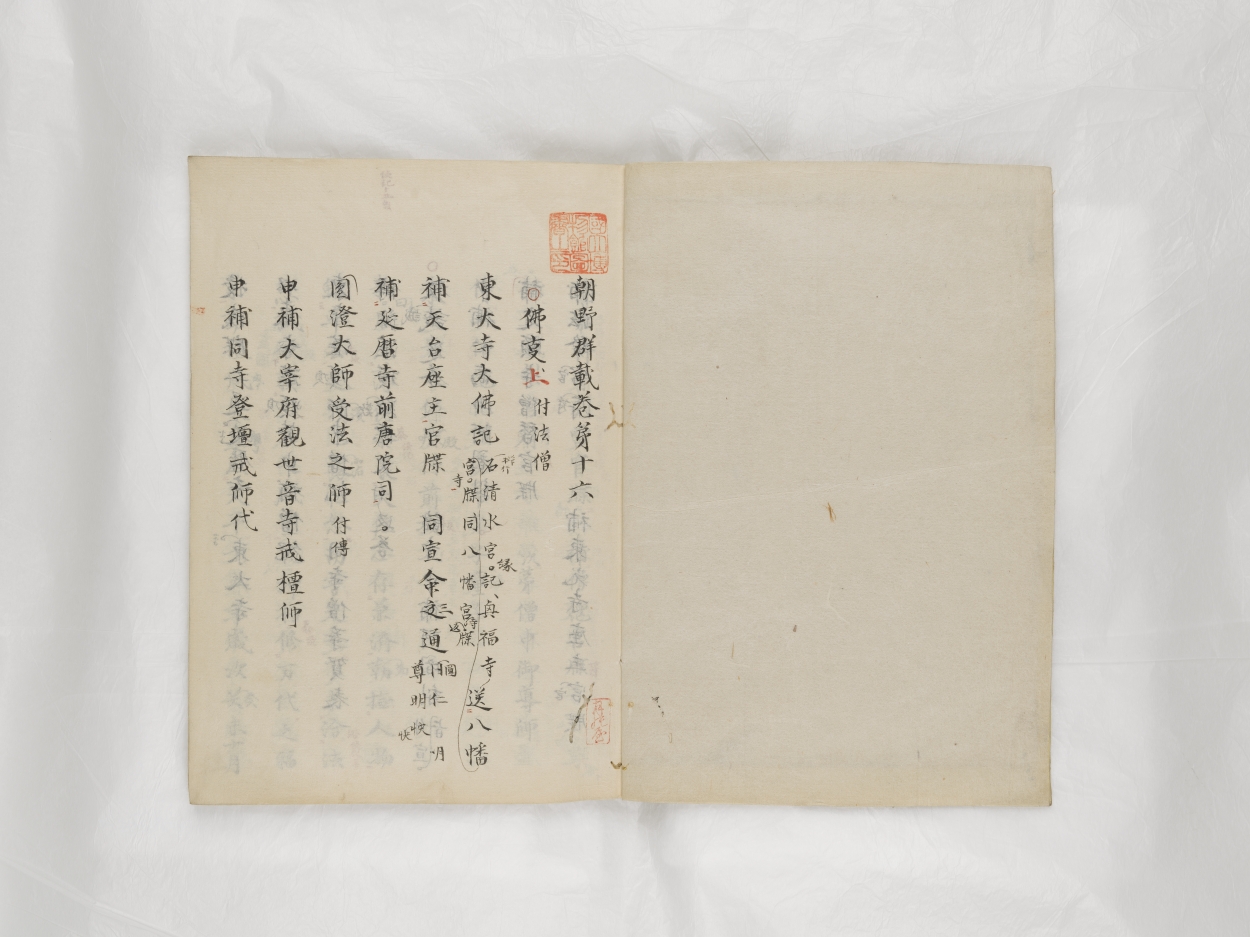 朝野群載卷第十六
佛事上 付法僧
東大寺大佛記 石清水宮記 縁 真福寺 送八幡
宮牒同八幡宮牒
寺
補天台座主官牒 同宣命 三通 円仁 明
尊 明快
快
補延暦寺前唐院司
圓澄大師受法之師 付傳
申補大宰府觀世音寺戒檀師
申補同寺登壇戒師代